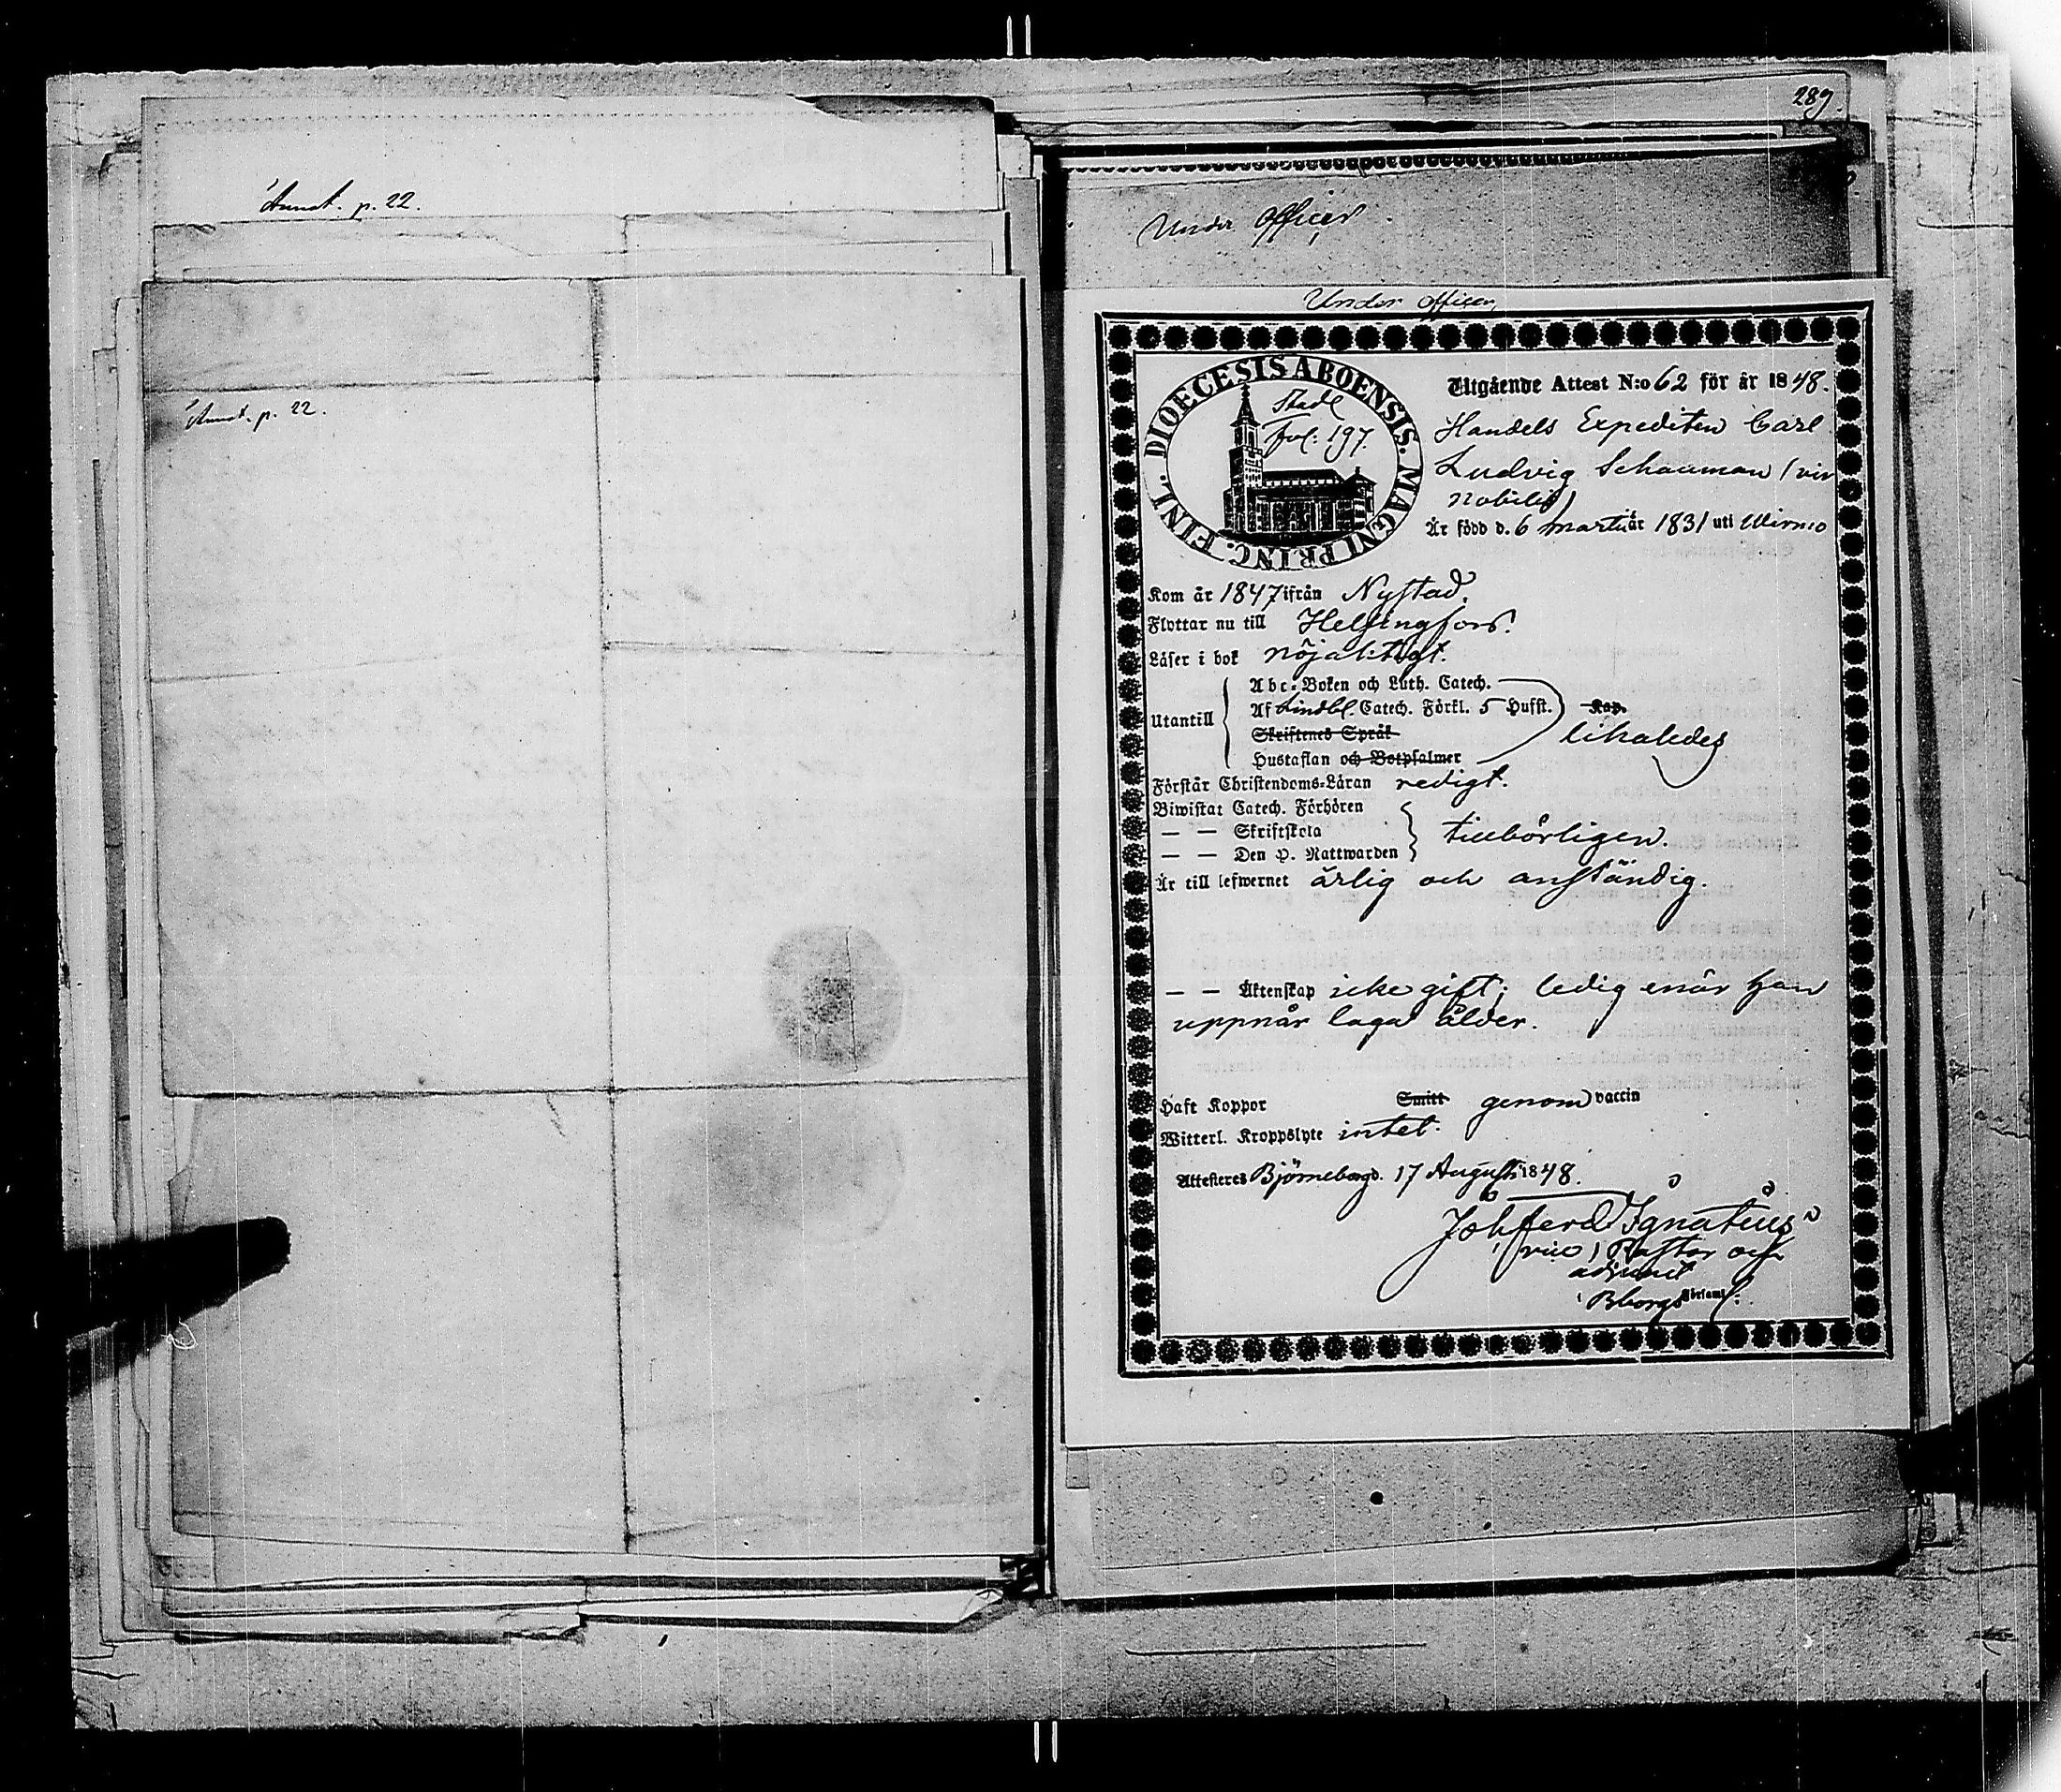 Annot. p. 22.
Annot. p. 22.
289.
Under Officer
Under officer,
DIOECESIS ABOENSIS. MAGNI PRINC. FINL.
Stadt
fol: 197.
Utgående Attest N:o 62 för år 1848.
Handels Expediten Carl
Ludvig Schauman (vir
nobilis)
Är född d. 6 martii år 1831 uti Wirmo
Kom år 1847 ifrån Nystad.
Flyttar nu till Helsingfors.
Läser i bok nöjaktigt.
Utantill
Abc-Boken och Luth. Catech.
Af Lindbl. Catech. Förkl. 5 Hufst. Kap.
Skriftenes Språk
likaledes
Hustaflan och Botpsalmer
Förstår Christendoms-Läran redigt.
Biwistat Catech. Förhören
— — Skriftskola
tillbörligen.
— — Den H. Nattwarden
Är till lefwernet ärlig och anständig.
— — Äktenskap icke gift; ledig enär han
uppnår laga ålder.
Haft Koppor Smitt genom vaccin
Witterl. Kroppslyte intet.
Attesteres Björneborg d. 17 Augusti 1848.
Joh ferd Ignatius
(vice) Pastor och
adjunct
Bborgs Församl: